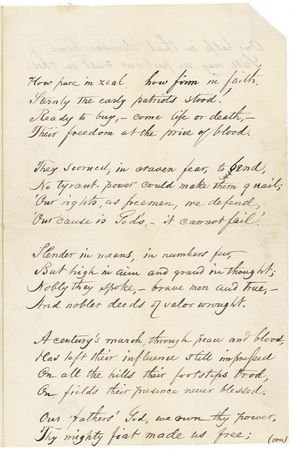 How pure in zeal, how firm in faith,
Sternly the early patriots stood.
Ready to buy,- come life or death,-
Their freedom at the price of blood.
They scorned, in craven fear, to bend,
No tyrant power could make them quail;
Our rights, as freemen, we defend,
Our cause is God's,- it cannot fail!
Slender in means, in numbers few,
But high in aim and grand in thought;
Nobly they spoke,- brave men and true,-
And nobler deeds of valor wrought.
A century's march through peace and blood,
Has left their influence still impressed
On all the hills their footsteps trod,
On fields their presence never blessed.
Our fathers' God, we own thy power,
Thy mighty fiat made us free;
(over)